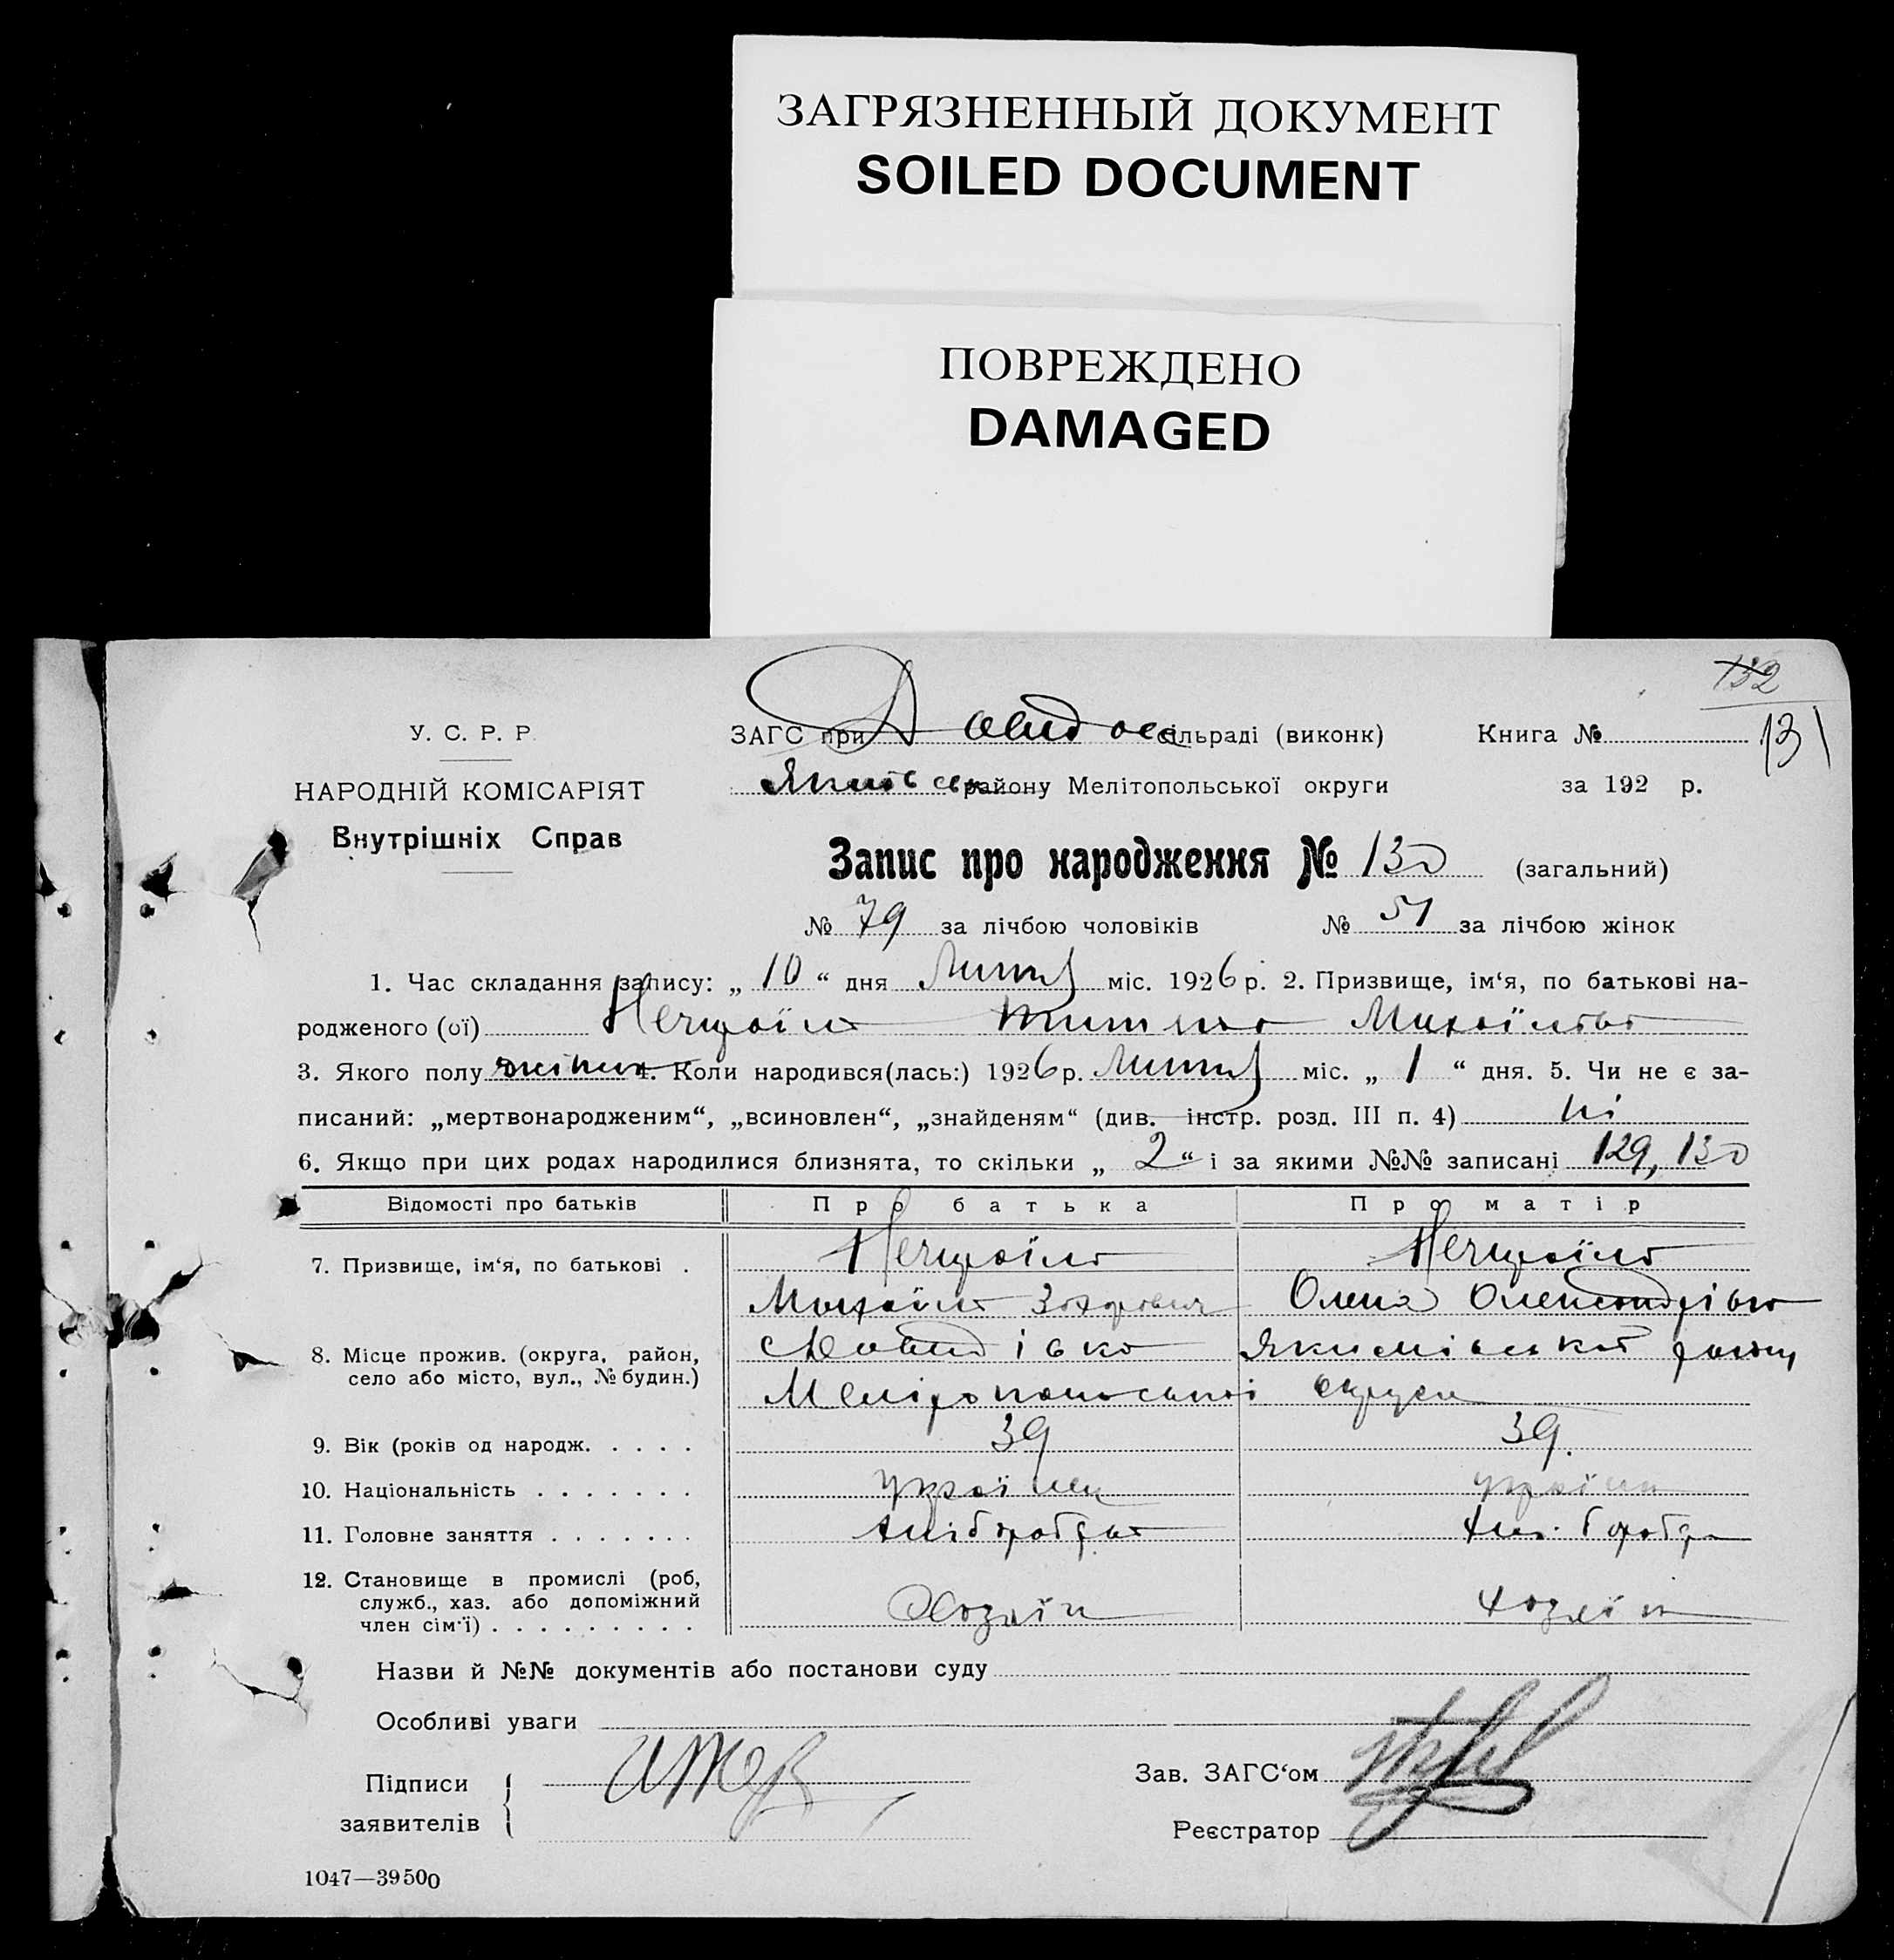 ЗАГРЯЗНЕННЫЙ ДОКУМЕНТ
SOILED DOCUMENT
ПОВРЕЖДЕНО
DAMAGED
132
131
У. С. Р. Р.
НАРОДНІЙ КОМІСАРІЯТ
Внутрішніх Справ
ЗАГС при Давидов сільраді (виконк) Книга №
Якимівськ району Мелітопольської округи за 192 р.
Запис про народження № 130 (загальний)
№ 79 за лічбою чоловіків № 51 за лічбою жінок
1. Час складання запису: „ 10 “ дня Липня міс. 1926 р. 2. Призвище, ім‘я, по батькові на-
родженого (ої) Михаїлова
3. Якого полу жіноч 4. Коли народився(лась:) 1926 р. Липня міс. „ 1 “ дня. 5. Чи не є за-
писаний: „мертвонародженим“, „всиновлен“, „знайденям“ (див. інстр. розд. III п. 4) ні
6. Якщо при цих родах народилися близнята, то скільки „ 2 “ і за якими №№ записані 129, 130
Відомості про батьків Про батька Про матір
7. Призвище, ім‘я, по батькові .
Михаїло Захарович Олена Олександрівна
8. Місце прожив. (округа, район, село або місто, вул., № будин.) Давидівка Якимівської району
Мелітопольської округи
9. Вік (років од народж. . . . . 39 39.
10. Національність . . . . . . . Українец українка
11. Головне заняття . . . . . . . хліборобство хлі. бороб
12. Становище в промислі (роб, служб., хаз. або допоміжний член сім‘ї) . . . . . . . . . Хозяїн хозяїн
Назви й №№ документів або постанови суду
Особливі уваги
Підписи
заявителів
Зав. ЗАГС‘ом
Реєстратор
1047—39500